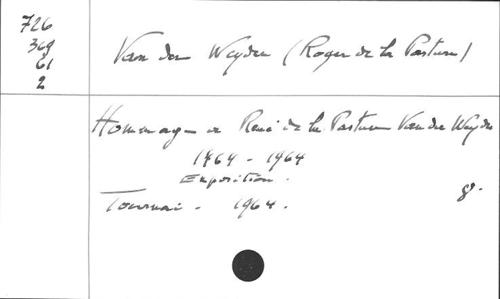 726
369
61
2
Van der Weyden (Roger de la Pasture)
Hommage a René de la Pasture Van der Weyden
1464 - 1964
Exposition.
Tournai - 1964.
8°.